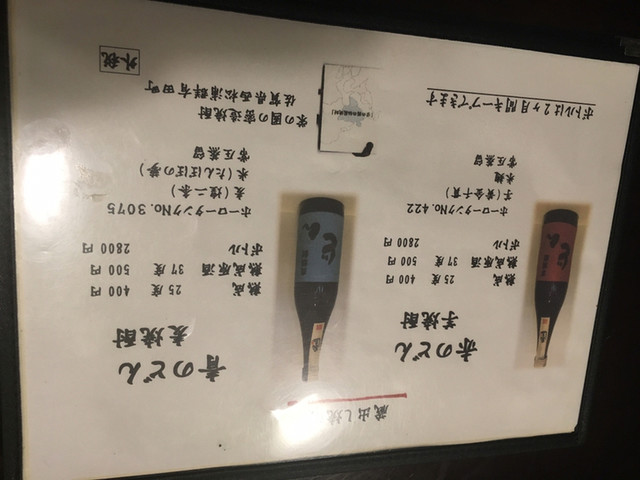 蔵出し焼
赤のどん
芋焼酎
熟成 25度 400円
熟成原酒 37度 500円
ボトル 2800円
ホーロータンクNo.422
芋（黄金千貫）
米麹
常圧蒸留
ボトルは2ヶ月間キープできます
どん
青のどん
麦焼酎
熟成 25度 400円
熟成原酒 37度 500円
ボトル 2800円
ホーロータンクNo.3075
麦（煌二条）
米（たんぼぼの夢）
常圧蒸留
栄の國の密造焼酎
佐賀県西松浦群有田町
外税
どん